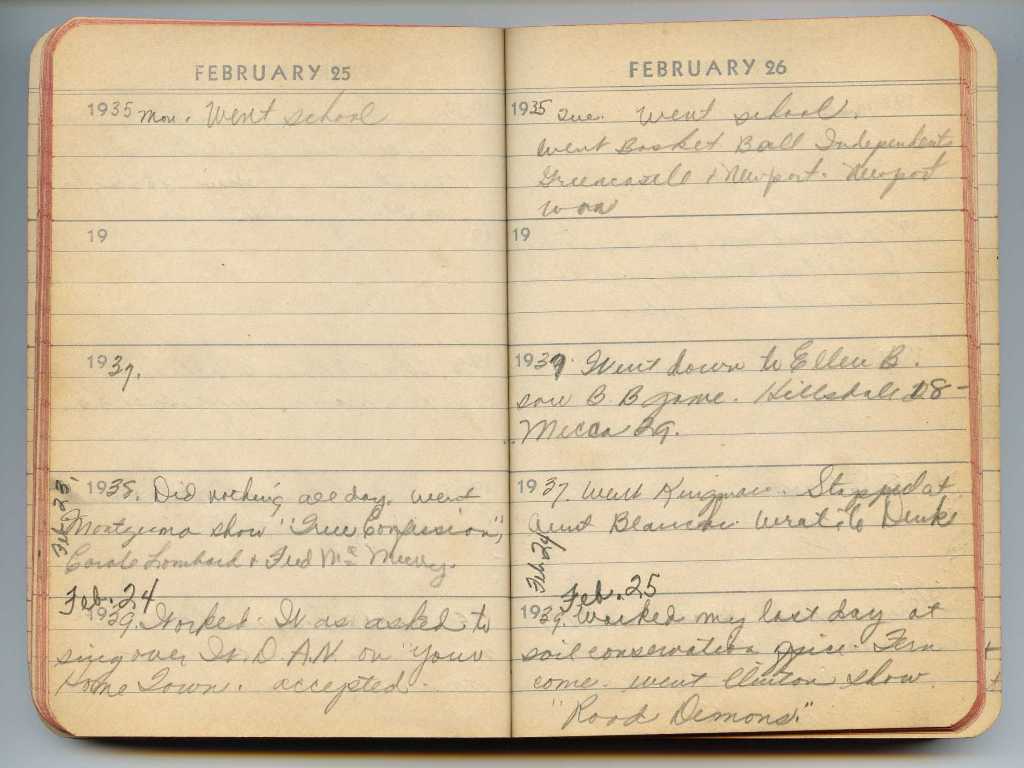 FEBRUARY 25
1935 Mon. Went school
19
1937.
Feb. 23.
1938. Did nothing all day. went
Montezuma show "True Confession",
Carole Lombard + Fred Mc Murry.
Feb. 24
1939. Worked. Was asked to
sing over on "Your
Home Town. accepted.
FEBRUARY 26
1935 Tue. Went school.
Went Basket Ball Independents
Greencastle + Newport. Newport
won
19
1937. Went down to Ellen B.
saw B B game. Hillsdale 28-
Mecca 29.
Feb. 24
1937. Went Kingman. Stopped at
Aunt Blanche. Wrat to
Feb. 25
1939. Worked my last day at
soil conservation office. Fern
come. went Clinton show
"Road Demons."